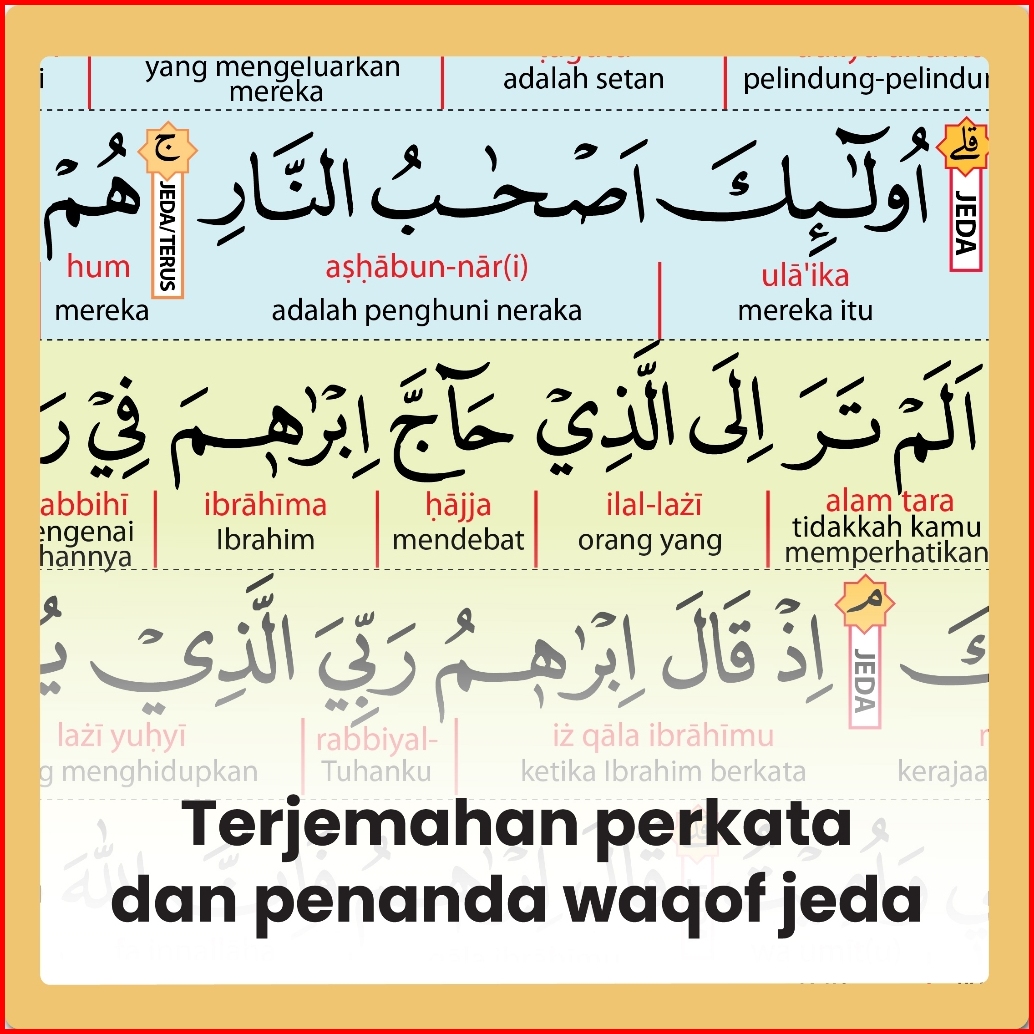 yang mengeluarkan adalah setan
mereka
اُولٰۤىِٕكَ اَصْحٰبُ النَّارِ ۚ هُمْ
قلے JEDA ج JEDA/TERUS
ulā'ika aṣḥābun-nār(i) hum
mereka itu adalah penghuni neraka mereka
اَلَمْ تَرَ اِلَى الَّذِيْ حَاۤجَّ اِبْرٰهٖمَ فِيْ
alam tara ilal-lażī ḥājja ibrāhīma abbihī
tidakkah kamu memperhatikan orang yang mendebat Ibrahim
اِذْ قَالَ اِبْرٰهٖمُ رَبِّيَ الَّذِيْ
م JEDA
iż qāla ibrāhīmu rabbiyal- lażī yuḥyī
ketika Ibrahim berkata Tuhanku menghidupkan
Terjemahan perkata
dan penanda waqof jeda